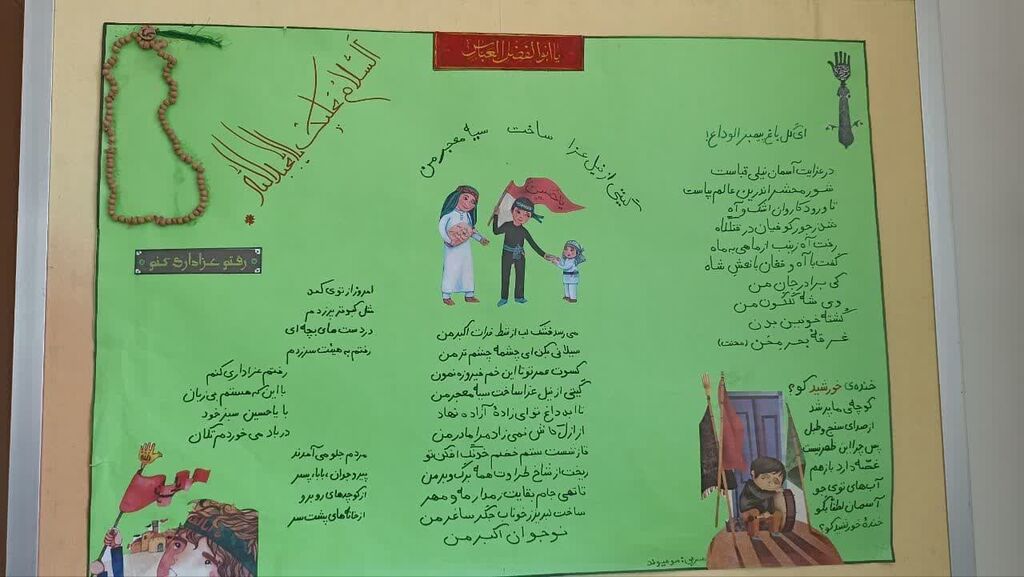 یا ابوالفضل العباس
السلام علیک یا اباعبدالله
ای گل باغ پیمبر الوداع
در عزایت آسمان نیلی قباست
شور محشر اندرین عالم بپاست
تا ورود کاروان اشک و آه
شد ز جور کوفیان در قتلگاه
رفت آه زینب از ماهی به ماه
گفت با آه و فغان با نعش شاه
کی برادر جان من
وی شه گلگون من
کشته خونین بدن
غرقهٔ بحر محن (محنت)
خنده‌ی خورشید کو؟
کوچه‌ی ما پر شد
از صدای سنج و طبل
پس چرا این ظهر نیست
غصه دارد باز هم
آب‌های توی جو
آسمان لطفاً بگو
خندهٔ خورشید کو؟
گیتی از نیل عزا ساخت سیه معجر من
یا حسین
می رسد خشک لب از شط فرات اکبر من
سیلانی بکن ای چشمه چشم تر من
کسوت عمر تو تا این خم فیروزه نمون
گیتی از نیل عزا ساخت سیه معجر من
تا ابد داغ تو ای زادهٔ آزاده نهاد
از ازل کاش نمی زاد مرا مادر من
تا ز شست ستم خصم خدنگ افکن تو
ریخت از شاخ طراوت همه برگ و بر من
تا تهی جام بقایت ز مدار مه و مهر
ساخت لبریز ز خوناب جگر ساغر من
نوجوان اکبر من
رفتم عزاداری کنم
امروز از توی کمد
مثل کبوتر پر زدم
در دست های بچه ای
رفتم به هیئت سر زدم
رفتم عزاداری کنم
با این که هستم بی زبان
با یاحسین سبز خود
در باد می خوردم تکان
مردم جلو می آمدند
پیر و جوان، بابا، پسر
از کوچه‌های رو به رو
از خانه‌های پشت سر